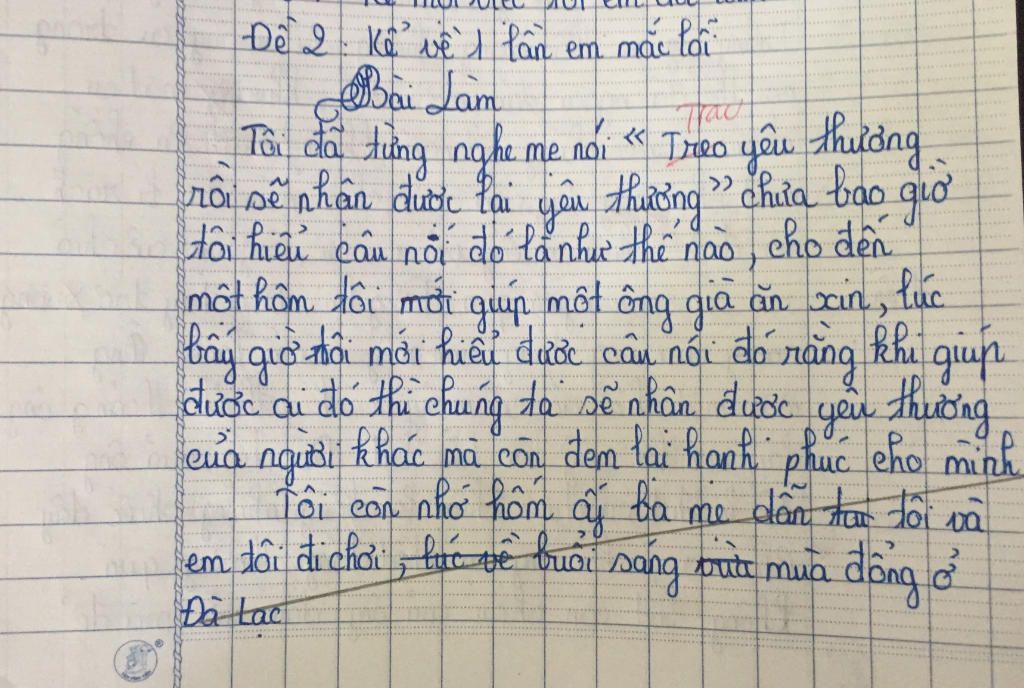 Đề 2: Kể về 1 lần em mắc lỗi
Bài Làm
Trao
Tôi đã từng nghe mẹ nói “ Treo yêu thương
rồi sẽ nhận được lại yêu thương” chưa bao giờ
tôi hiểu câu nói đó là như thế nào, cho đến
một hôm tôi mới giúp một ông già ăn xin, lúc
bấy giờ tôi mới hiểu được câu nói đó rằng khi giúp
được ai đó thì chúng ta sẽ nhận được yêu thương
của người khác mà còn đem lại hạnh phúc cho mình
Tôi còn nhớ hôm ấy ba mẹ dẫn tôi và
em tôi đi chơi, lúc về buổi sáng mùa đông ở
Đà Lạc